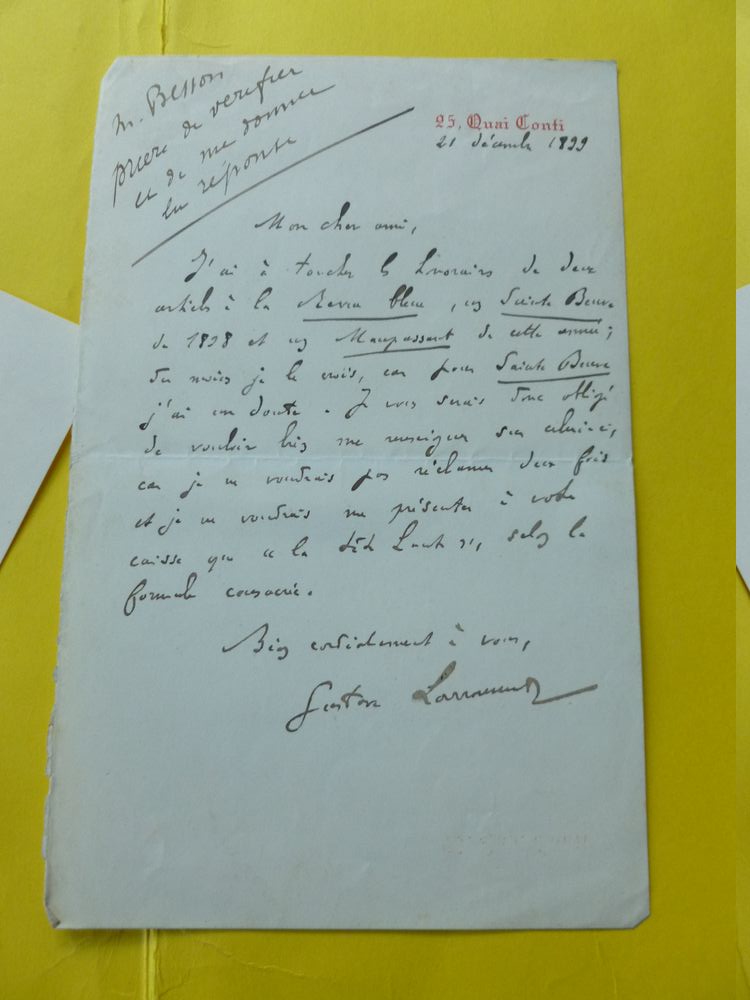 M. Besson
prière de vérifier
et de me donner
la réponse
25, Quai Conti
21 décembre 1899
Mon cher ami,
J'ai à toucher les honoraires de deux
articles à la Revue bleue, un Sainte Beuve
de 1898 et un Maupassant de cette année ;
du moins je le crois, car pour Sainte Beuve
j'ai un doute. Je vous serais donc obligé
de vouloir bien me renseigner sur celui-ci,
car je ne voudrais pas réclamer deux fois
et je ne voudrais me présenter à votre
caisse que la tête haute, selon la
formule consacrée.
Bien cordialement à vous,
Gustave Larroumet